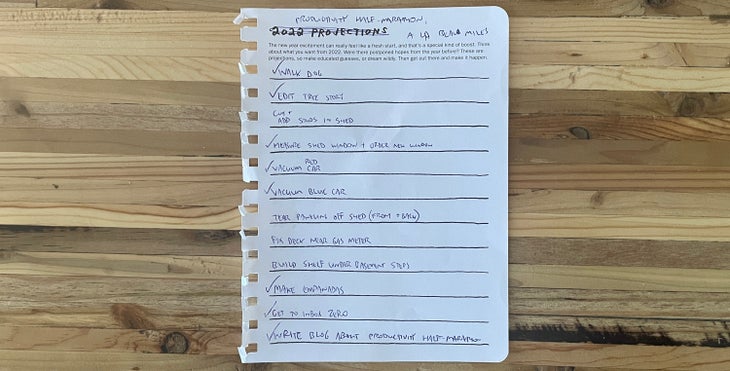 PRODUCTIVITY HALF-MARATHON,
2022 PROJECTIONS A LA BEAU MILES
The new year excitement can really feel like a fresh start, and that's a special kind of boost. Think
about what you want from 2022. Were there postponed hopes from the year before? These are
projections, so make educated guesses, or dream wildly. Then get out there and make it happen.
✓WALK DOG
✓EDIT TREE STORY
CUT +
ADD STUDS IN SHED
✓MEASURE SHED WINDOW + ORDER NEW WINDOW
RED
✓VACUUM CAR
✓VACUUM BLUE CAR
TEAR PANELING OFF SHED (FRONT + BACK)
FIX DECK NEAR GAS METER
BUILD SHELF UNDER BASEMENT STEPS
✓MAKE EMPANADAS
✓GET TO INBOX ZERO
✓WRITE BLOG ABOUT PRODUCTIVITY HALF-MARATHON